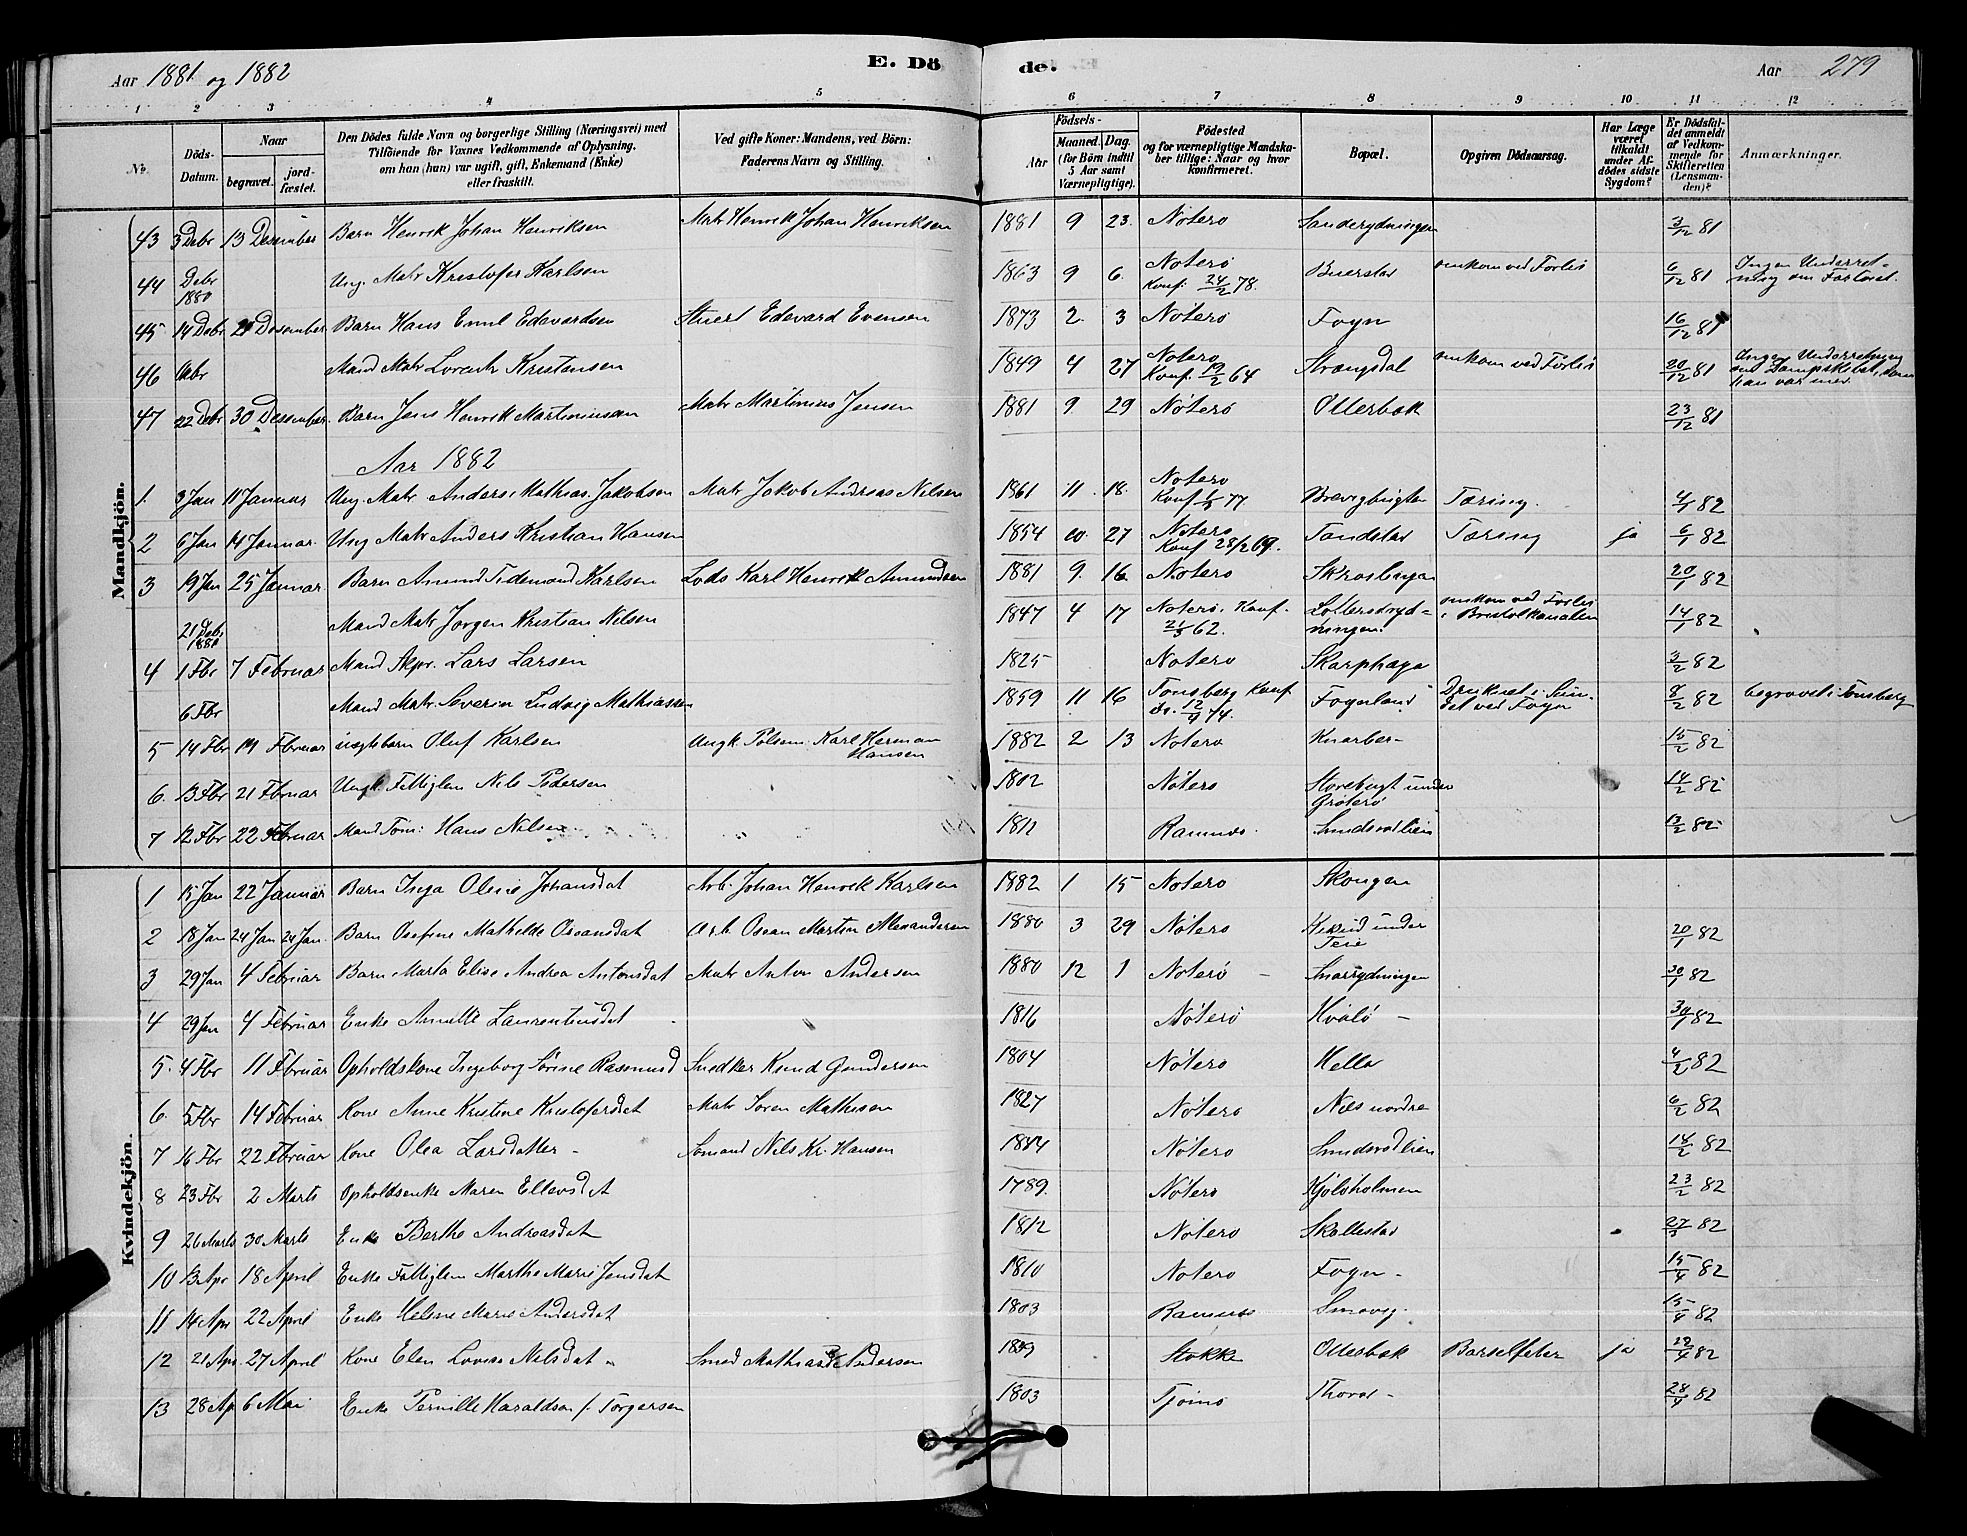 Aar 1881 og 1882 E. Dö de. Aar 279
1 2 3 4 5 6 7 8 9 10 11 12
No. Döds-Datum. Naar begravet. jord-fæstet. Den Dödes fulde Navn og borgerlige Stilling (Næringsvei) med Tilföiende for Voxnes Vedkommende af Oplysning, om han (hun) var ugift, gift, Enkemand (Enke) eller fraskilt. Ved gifte Koner: Mandens, ved Börn: Faderens Navn og Stilling. Födsels- Aar Maaned. Dag. (for Börn indtil 5 Aar samt Værnepligtige). Födested og for værnepligtige Mandskaber tillige: Naar og hvor konfirmeret. Bopæl. Opgiven Dödsaarsag. Har Læge været tilkaldt under Afdödes sidste Sygdom? Er Dödsfaldet anmeldt af Vedkommende for Skifteretten (Lensmanden)? Anmærkninger.
Mandkjön.
43 3 Debr 13 Desember Barn Henrik Johan Henriksen Matr Henrik Johan Henriksen 1881 9 23. Nøterø Sanderydningen 3/12 81
44 Debr 1880 Ung. Matr Kristofer Karlsen 1863 9 6. Nøterø Konf. 24/2 78. Buerstad omkom ved Forlis 6/12 81 Ingen Underretning om Fartøiet.
45 14 Debr 21 Desember Barn Hans Emil Edvardsen Stuert Edevard Evensen 1873 2 3 Nøterø Føyn 16/12 81
46 Mand Matr Lorents Kristensen 1849 4 27 Nøterø Konf. 19/2 64 Strengsdal omkom ved Forlis 20/12 81 Ingen Underretning om Dampskibet, som han var med.
47 22 Debr 30 Dessember Barn Jens Henrik Martiniusen Matr Martinius Jensen 1881 9 29 Nøterø Ollerbak 23/12 81
Aar 1882
1. 3 Jan 11 Januar Ung. Matr Anders Mathias Jakobsen Matr Jakob Andreas Nilsen 1861 11 18. Nøterø Konf 77 Brevigbugten Tæring. 4/1 82
2 6 Jan 14 Januar. Ung Matr Anders Kristian Hansen 1854 10 27 Nøterø Konf 28/2 69. Tandstad Tæring ja 6/1 82
3 19 Jan 25 Januar. Barn Amund Tidemand Karlsen Lods Karl Henrik Amundsen 1881 9. 16 Nøterø 20/1 82
21 Debr Mand Matr Jørgen Kristian Nilsen 1847 4 17 Nøterø. Konf. 62. omkom ved Forlis i Bristolkanalen 14/1 82
4 1 Fbr 7 Februar Mand Skpr. Lars Larsen 1825 Nøterø Skarphaga 3/2 82
6 Fbr Mand Matr. Severin Ludvig Mathiassen 1859 11 16 Tønsberg Konf 74. Føynland Druknet i Sundet ved Føyn 8/2 82 begravet i Tønsberg
5 14 Fbr 19 Fbruar uægtebarn Oluf Karlsen Ungk. Karl Herman Hansen 1882 2 13 Nøterø Knarber- 15/2 82
6. 13 Fbr 21 Fbruar Ungk. Fattiglem Nils Pedersen 1802 Nøterø Storebugt under Grøterø 14/2 82
7 12 Fbr 22 Februar Mand Tøm: Hans Nilsen 1812 Ramnes Smidsrødlien 13/2 82
Kvindekjön.
1 15 Jan 22 Januar Barn Inga Olesie Johansdat Arb. Johan Henrik Karlsen 1882 1 15 Nøterø Skougen
2 18 Jan 24 Jan 24 Jan. Barn Osefine Mathilde Oscarsdat Arb. Oscar Martin Alexandersen 1880 3 29 Nøterø Kikud under Teie 20/1 82
3 29 Jan 4 Februar Barn Marta Elise Andrea Antonsdat Matr Anton Andersen 1880 12 1 Nøterø Snarrydningen 30/1 82
4 29 Jan 4 Februar Enke Annette Laurentiusdat 1816 Nøterø Hvalø 30/1 82
5. 4 Fbr 11 Februar Opholdskone Ingeborg Sørine Rasmusd Snedker Knud Gundersen 1804 Nøterø Hella 4/2 82
6. 5 Fbr 14 Februar Kone Anne Kristine Kristofersdat Matr Søren Mathisen 1827 Nøterø Næs nordre 6/2 82
7 16 Fbr 22 Februar Kone Olea Larsdatter Sømand Nils Kr. Hansen 1844 Nøterø Smidsrødlien 18/2 82
8 23 Fbr 2 Marts Opholdsenke Maren Ellevsdat 1789. Nøterø Kjølsholmen 23/2 82
9 26 Marts 30 Marts Enke Berthe Andreasdat 1812 Nøterø Skallestad 27/3 82
10 13 Apr 18 April Enke Fattiglem Marthe Marie Jensdat 1810 Nøterø Føyn 15/4 82
11 14 Apr 22 April Enke Helene Marie Andersdat 1803 Ramnes Smøvig. 15/4 82
12 21 Apr 27 April Kone Elen Lovise Nilsdat Smed Mathias Andersen Stokke Ollebak Barselfeber ja 22/4 82
13 28 Ap 6 Mai Enke Pernille Haraldsen f. Torgersen 1803 Tjømø Thorød 28/4 82